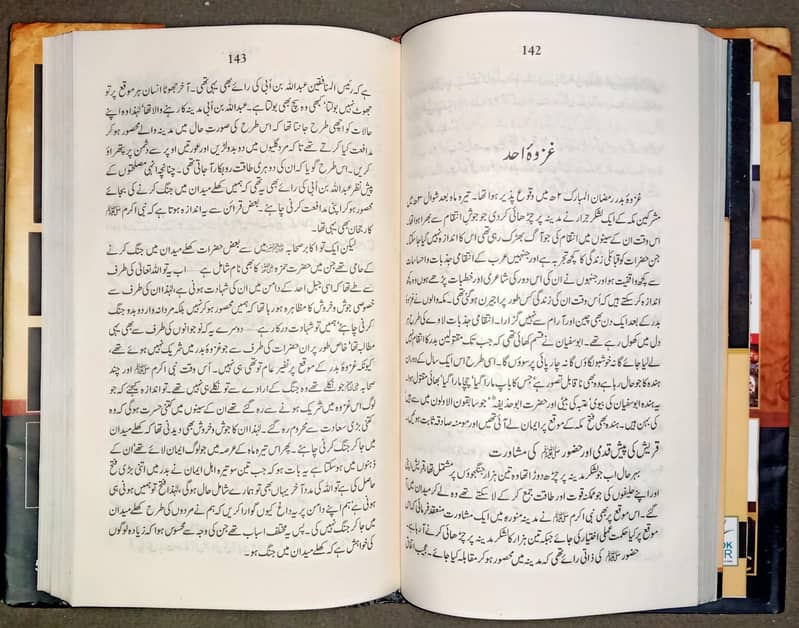 142
غزوۂ احد
غزوۂ بدر رمضان المبارک ۲ھ میں وقوع پذیر ہوا تھا۔ تیرہ ماہ بعد شوال ۳ھ میں
مشرکین مکہ کے ایک لشکر جرار نے مدینہ پر چڑھائی کر دی جو جوشِ انتقام سے بھرا ہوا تھا۔
اس وقت ان کے سینوں میں انتقام کی جو آگ بھڑک رہی تھی اس کا اندازہ نہیں کیا جا سکتا۔
جن حضرات کو قبائلی زندگی کا کچھ تجربہ ہے اور جنہیں عرب کے انتقامی جذبات و احساسات
سے کچھ واقفیت ہو اور جنہوں نے ان کی اس دور کی شاعری اور خطبات پڑھے ہوں وہ کچھ
اندازہ کر سکتے ہیں کہ اُس وقت ان کی زندگی کس طور پر اجیرن ہو گئی تھی۔ مکہ والوں نے غزوۂ
بدر کے بعد ایک دن بھی چین اور آرام سے نہیں گزارا۔ انتقامی جذبات لاوے کی طرح ان کے
دل میں کھول رہے تھے۔ ابوسفیان نے قسم کھائی تھی کہ جب تک مقتولین بدر کا انتقام نہیں
لے لیا جائے گا نہ خوشبو لگاؤں گا نہ چارپائی پر سوؤں گا۔ اسی طرح اس ایک سال کے دوران
ہندہ کا جو حال رہا ہے وہ بھی ناقابل تصور ہے جس کا باپ مارا گیا، چچا مارا گیا، بھائی مقتول ہوا۔
یہ ہندہ ابوسفیان کی بیوی، عتبہ کی بیٹی اور حضرت ابوحذیفہؓ جو سابقون الاولون میں سے ہیں
کی بہن ہیں۔ ہندہ بھی فتح مکہ کے موقع پر ایمان لے آئی تھیں اور مومنہ صادقہ ثابت ہوئیں۔
قریش کی پیش قدمی اور حضور ﷺ کی مشاورت
بہرحال اب جو لشکر مدینہ پر چڑھ دوڑا تھا وہ تین ہزار جنگجوؤں پر مشتمل تھا، قریش اپنی
اور اپنے حلیفوں کی جو ممکنہ قوت اور طاقت جمع کر کے لا سکتے تھے وہ لے کر میدان میں آ
گئے۔ اس موقع پر بھی نبی اکرم ﷺ نے مدینہ منورہ میں ایک مشاورت منعقد فرمائی کہ اس
موقع پر کیا حکمت عملی اختیار کی جائے جبکہ تین ہزار کا لشکر مدینہ پر چڑھائی کرنے آ رہا ہے۔
حضور ﷺ کی ذاتی رائے یہ تھی کہ مدینہ میں محصور ہو کر مقابلہ کیا جائے۔ عجیب اتفاق
143
ہے کہ رئیس المنافقین عبداللہ بن اُبی کی رائے بھی یہی تھی۔ آخر جھوٹا انسان ہر موقع پر تو
جھوٹ نہیں بولتا، کبھی وہ سچ بھی بولتا ہے۔ عبداللہ بن اُبی مدینہ کا رہنے والا تھا، لہٰذا وہ اپنے
حالات کو اچھی طرح جانتا تھا کہ اس طرح کی صورت حال میں مدینہ والے محصور ہو کر
مدافعت کیا کرتے تھے تاکہ مرد گلیوں میں دو بدو لڑیں اور عورتیں اوپر سے دشمن پر پتھراؤ
کریں۔ اس طرح گویا کہ ان کی دوہری طاقت روبکار آ جاتی تھی۔ چنانچہ انہی مصلحتوں کے
پیش نظر عبداللہ بن اُبی کی رائے بھی یہ تھی کہ ہمیں کھلے میدان میں جنگ کرنے کی بجائے
محصور ہو کر اپنی مدافعت کرنی چاہئے۔ بعض قرائن سے یہ اندازہ ہوتا ہے کہ نبی اکرم ﷺ
کا رجحان بھی یہی تھا۔
لیکن ایک تو اکابر صحابہ میں سے بعض حضرات کھلے میدان میں جنگ کرنے
کے حامی تھے جن میں حضرت حمزہ کا بھی نام شامل ہے — اب یہ تو اللہ تعالیٰ کی طرف
سے طے تھا کہ اسی جبل احد کے دامن میں ان کی شہادت ہونی ہے، لہٰذا ان کی طرف سے
خصوصی جوش و خروش کا مظاہرہ ہو رہا تھا کہ ہمیں محصور ہو کر نہیں بلکہ مردانہ وار دو بدو جنگ
کرنی چاہئے، ہمیں تو شہادت درکار ہے — دوسرے یہ کہ نوجوانوں کی طرف سے بھی یہی
مطالبہ تھا، خاص طور پر ان حضرات کی طرف سے جو غزوۂ بدر میں شریک نہیں ہوئے تھے،
کیونکہ غزوۂ بدر کے موقع پر نفیر عام تو تھی ہی نہیں۔ اُس وقت نبی اکرم ﷺ اور چند
صحابہ جو نکلے تھے وہ جنگ کے ارادے سے تو نکلے ہی نہیں تھے۔ تو اندازہ کیجئے کہ جو
لوگ اس غزوہ میں شریک ہونے سے رہ گئے تھے ان کے سینوں میں کتنی حسرت ہو گی کہ وہ
کتنی بڑی سعادت سے محروم رہ گئے۔ لہٰذا ان کا جوش و خروش بھی دیدنی تھا کہ کھلے میدان
میں جا کر جنگ کرنی چاہئے۔ پھر اس تیرہ ماہ کے عرصہ میں جو لوگ ایمان لائے تھے ان کے
ذہنوں میں ہو سکتا ہے یہ بات ہو کہ جب تین سو تیرہ اہل ایمان نے بدر میں اتنی بڑی فتح
حاصل کی ہے تو اللہ کی مدد آخر یہاں بھی تو ہمارے شامل حال ہو گی، لہٰذا فتح تو ہمیں ہونی ہی
ہونی ہے، ہم اپنے دامن پر یہ داغ کیوں گوارا کریں کہ ہم نے مردوں کی طرح کھلے میدان
میں جا کر جنگ نہیں کی۔ پس یہ مختلف اسباب تھے جن کی وجہ سے محسوس ہوا کہ زیادہ لوگوں
کی خواہش ہے کہ کھلے میدان میں جنگ ہو۔